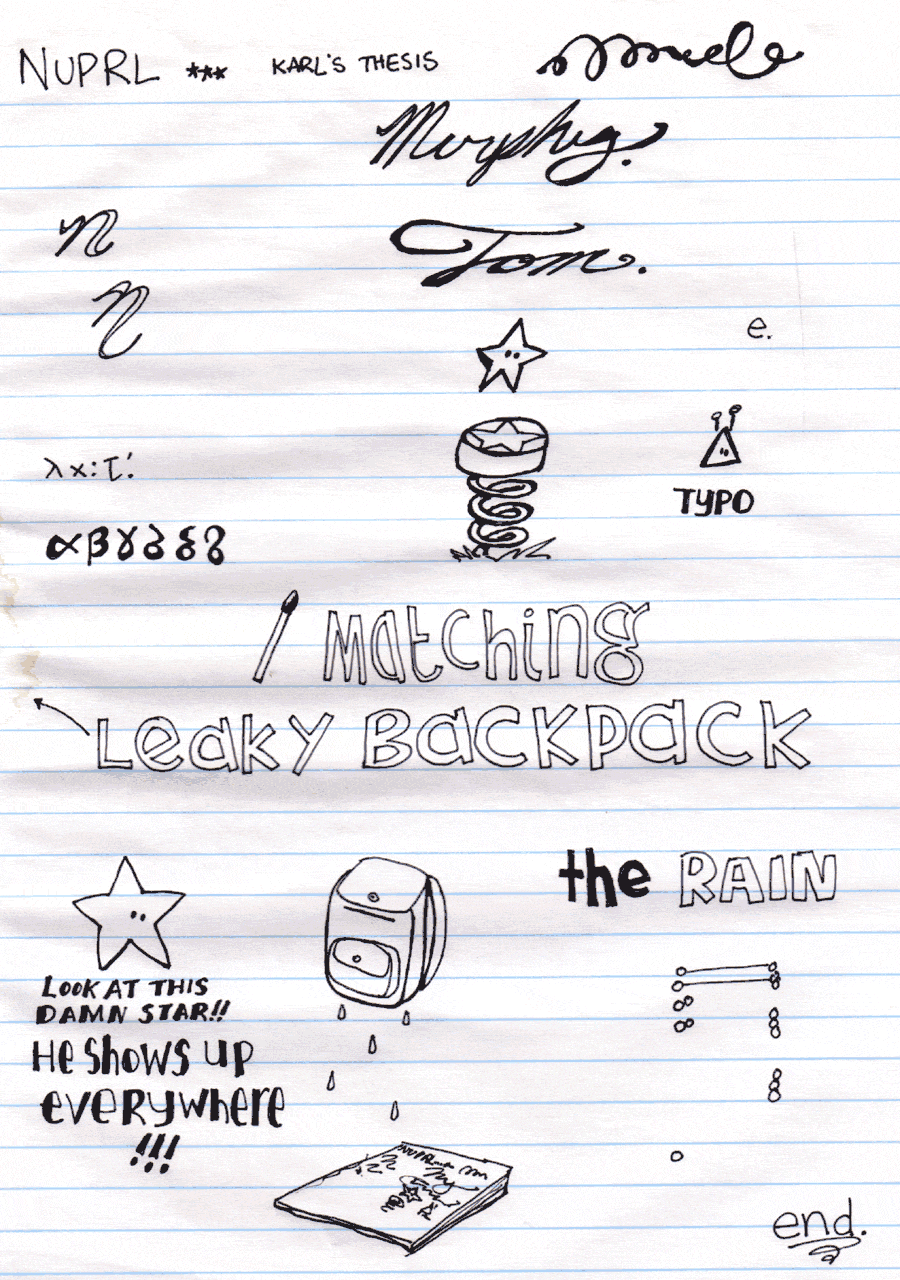 NUPRL *** KARL'S THESIS
Murphy.
n
Tom.
n
e.
λx:τ.'
TYPO
αβγδ
Matching
Leaky Backpack
the RAIN
LOOK AT THIS
DAMN STAR!!
He shows up
everywhere
!!!
end.